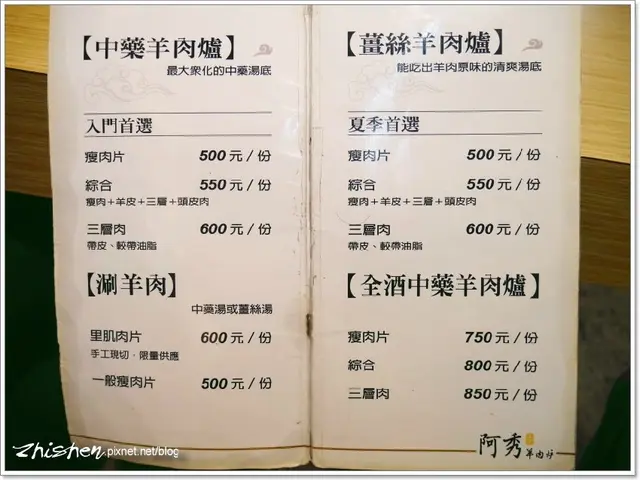 【中藥羊肉爐】
最大衆化的中藥湯底
入門首選
瘦肉片 500元/份
綜合 550元/份
瘦肉+羊皮+三層+頭皮肉
三層肉 600元/份
帶皮、較帶油脂
【涮羊肉】
中藥湯或薑絲湯
里肌肉片 600元/份
手工現切・限量供應
一般瘦肉片 500元/份
【薑絲羊肉爐】
能吃出羊肉原味的清爽湯底
夏季首選
瘦肉片 500元/份
綜合 550元/份
瘦肉+羊皮+三層+頭皮肉
三層肉 600元/份
帶皮、較帶油脂
【全酒中藥羊肉爐】
瘦肉片 750元/份
綜合 800元/份
三層肉 850元/份
阿秀羊肉爐
zhishen.pixnet.net/blog